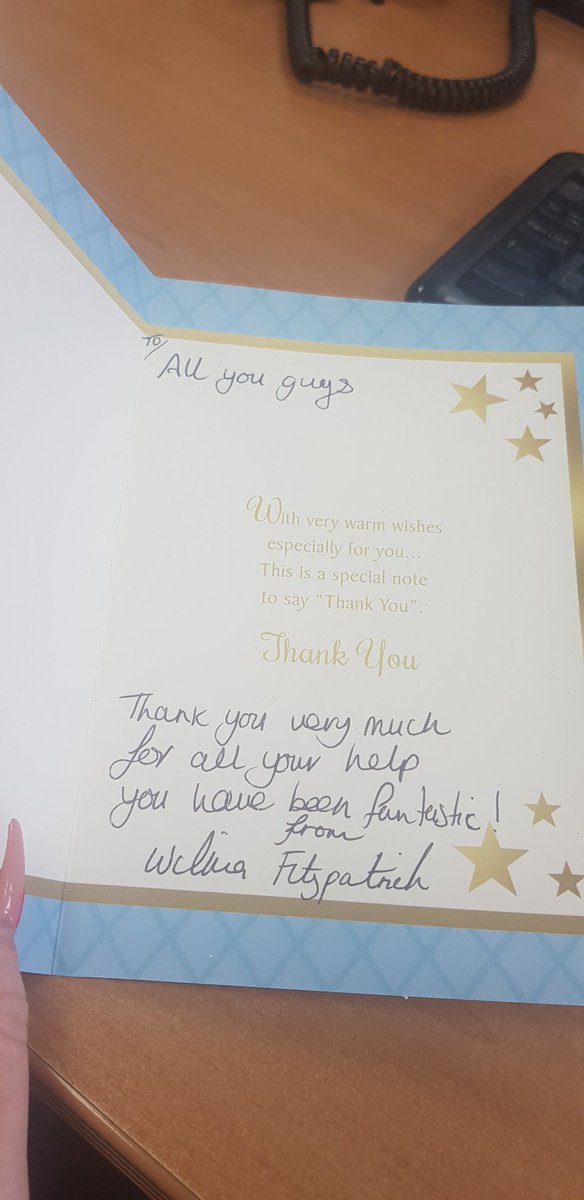 To/
All you guys
With very warm wishes
especially for you...
This is a special note
to say "Thank You".
Thank You
Thank you very much
for all your help
you have been fantastic!
from
Wilma Fitzpatrick